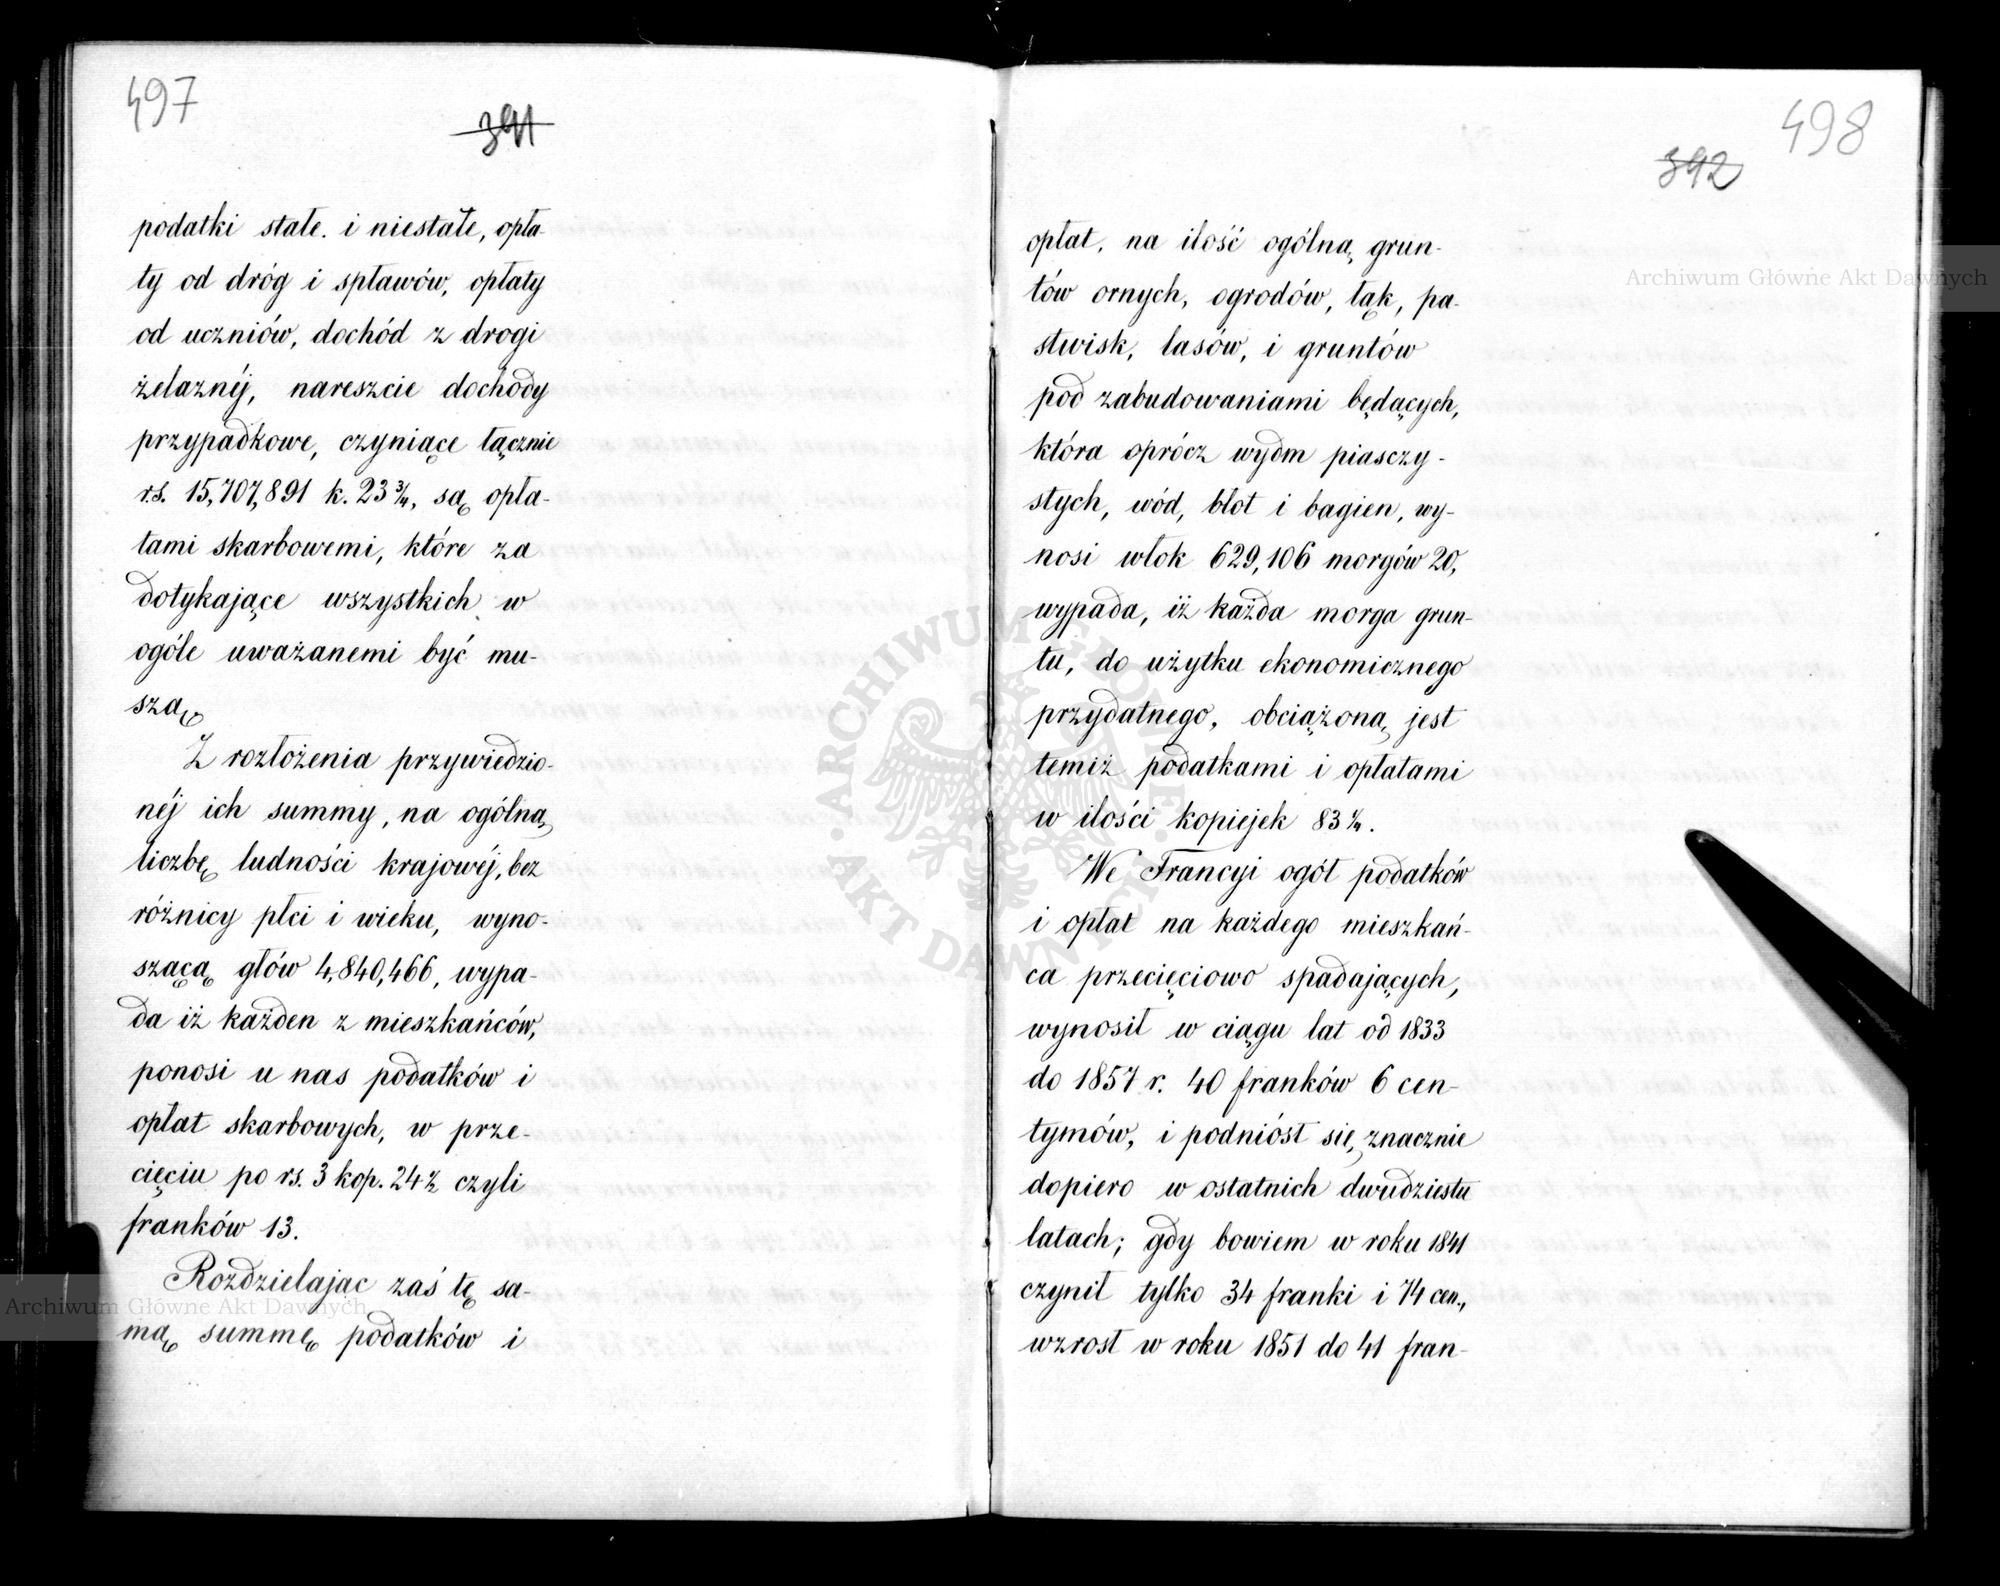 497
391
podatki stałe. i niestałe, opła-
ty od dróg i spławów, opłaty
od uczniów, dochód z drogi
żelaznéj, nareszcie dochody
przypadkowe, czyniące łącznie
rs. 15,707,891 k. 23 3/4, są opła-
tami skarbowemi, które za
dotykające wszystkich w
ogóle uważanemi być mu-
szą.
Z rozłożenia przywiedzio-
néj ich summy, na ogólną
liczbę ludności krajowéj, bez
różnicy płci i wieku, wyno-
szącą głów 4,840,466, wypa-
da iż każden z mieszkańców,
ponosi u nas podatków i
opłat skarbowych, w prze-
cięciu po rs. 3 kop. 24 1/2 czyli
franków 13.
Rozdzielając zaś tę sa-
mą summę podatków i
498
392
opłat, na ilość ogólną grun-
tów ornych, ogrodów, łąk, pa-
stwisk, lasów, i gruntów
pod zabudowaniami będących,
która oprócz wydm piasczy-
stych, wód, błot i bagien, wy-
nosi włok 629,106 morgów 20,
wypada, iż każda morga grun-
tu, do użytku ekonomicznego
przydatnego, obciążoną jest
temiż podatkami i opłatami
w ilości kopiejek 83 1/4.
We Francyi ogół podatków
i opłat na każdego mieszkań-
ca przecięciowo spadających,
wynosił w ciągu lat od 1833
do 1857 r. 40 franków 6 cen-
tymów, i podniósł się znacznie
dopiero w ostatnich dwudziestu
latach; gdy bowiem w roku 1841
czynił tylko 34 franki i 74 cen.,
wzrosł w roku 1851 do 41 fran-
Archiwum Główne Akt Dawnych
Archiwum Główne Akt Dawnych
ARCHIWUM GŁÓWNE AKT DAWNYCH